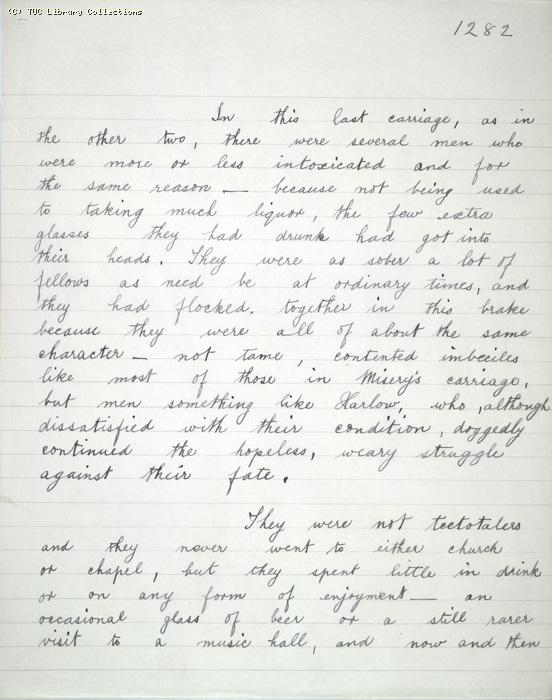 (c) TUC Library Collections
1282
In this last carriage, as in
the other two, there were several men who
were more or less intoxicated and for
the same reason — because not being used
to taking much liquor, the few extra
glasses they had drunk had got into
their heads. They were as sober a lot of
fellows as need be at ordinary times, and
they had flocked. together in this brake
because they were all of about the same
character — not tame, contented imbeciles
like most of those in Misery's carriage,
but men something like Harlow, who, although
dissatisfied with their condition, doggedly
continued the hopeless, weary struggle
against their fate.
They were not teetotalers
and they never went to either church
or chapel, but they spent little in drink
or on any form of enjoyment — an
occasional glass of beer or a still rarer
visit to a music hall, and now and then